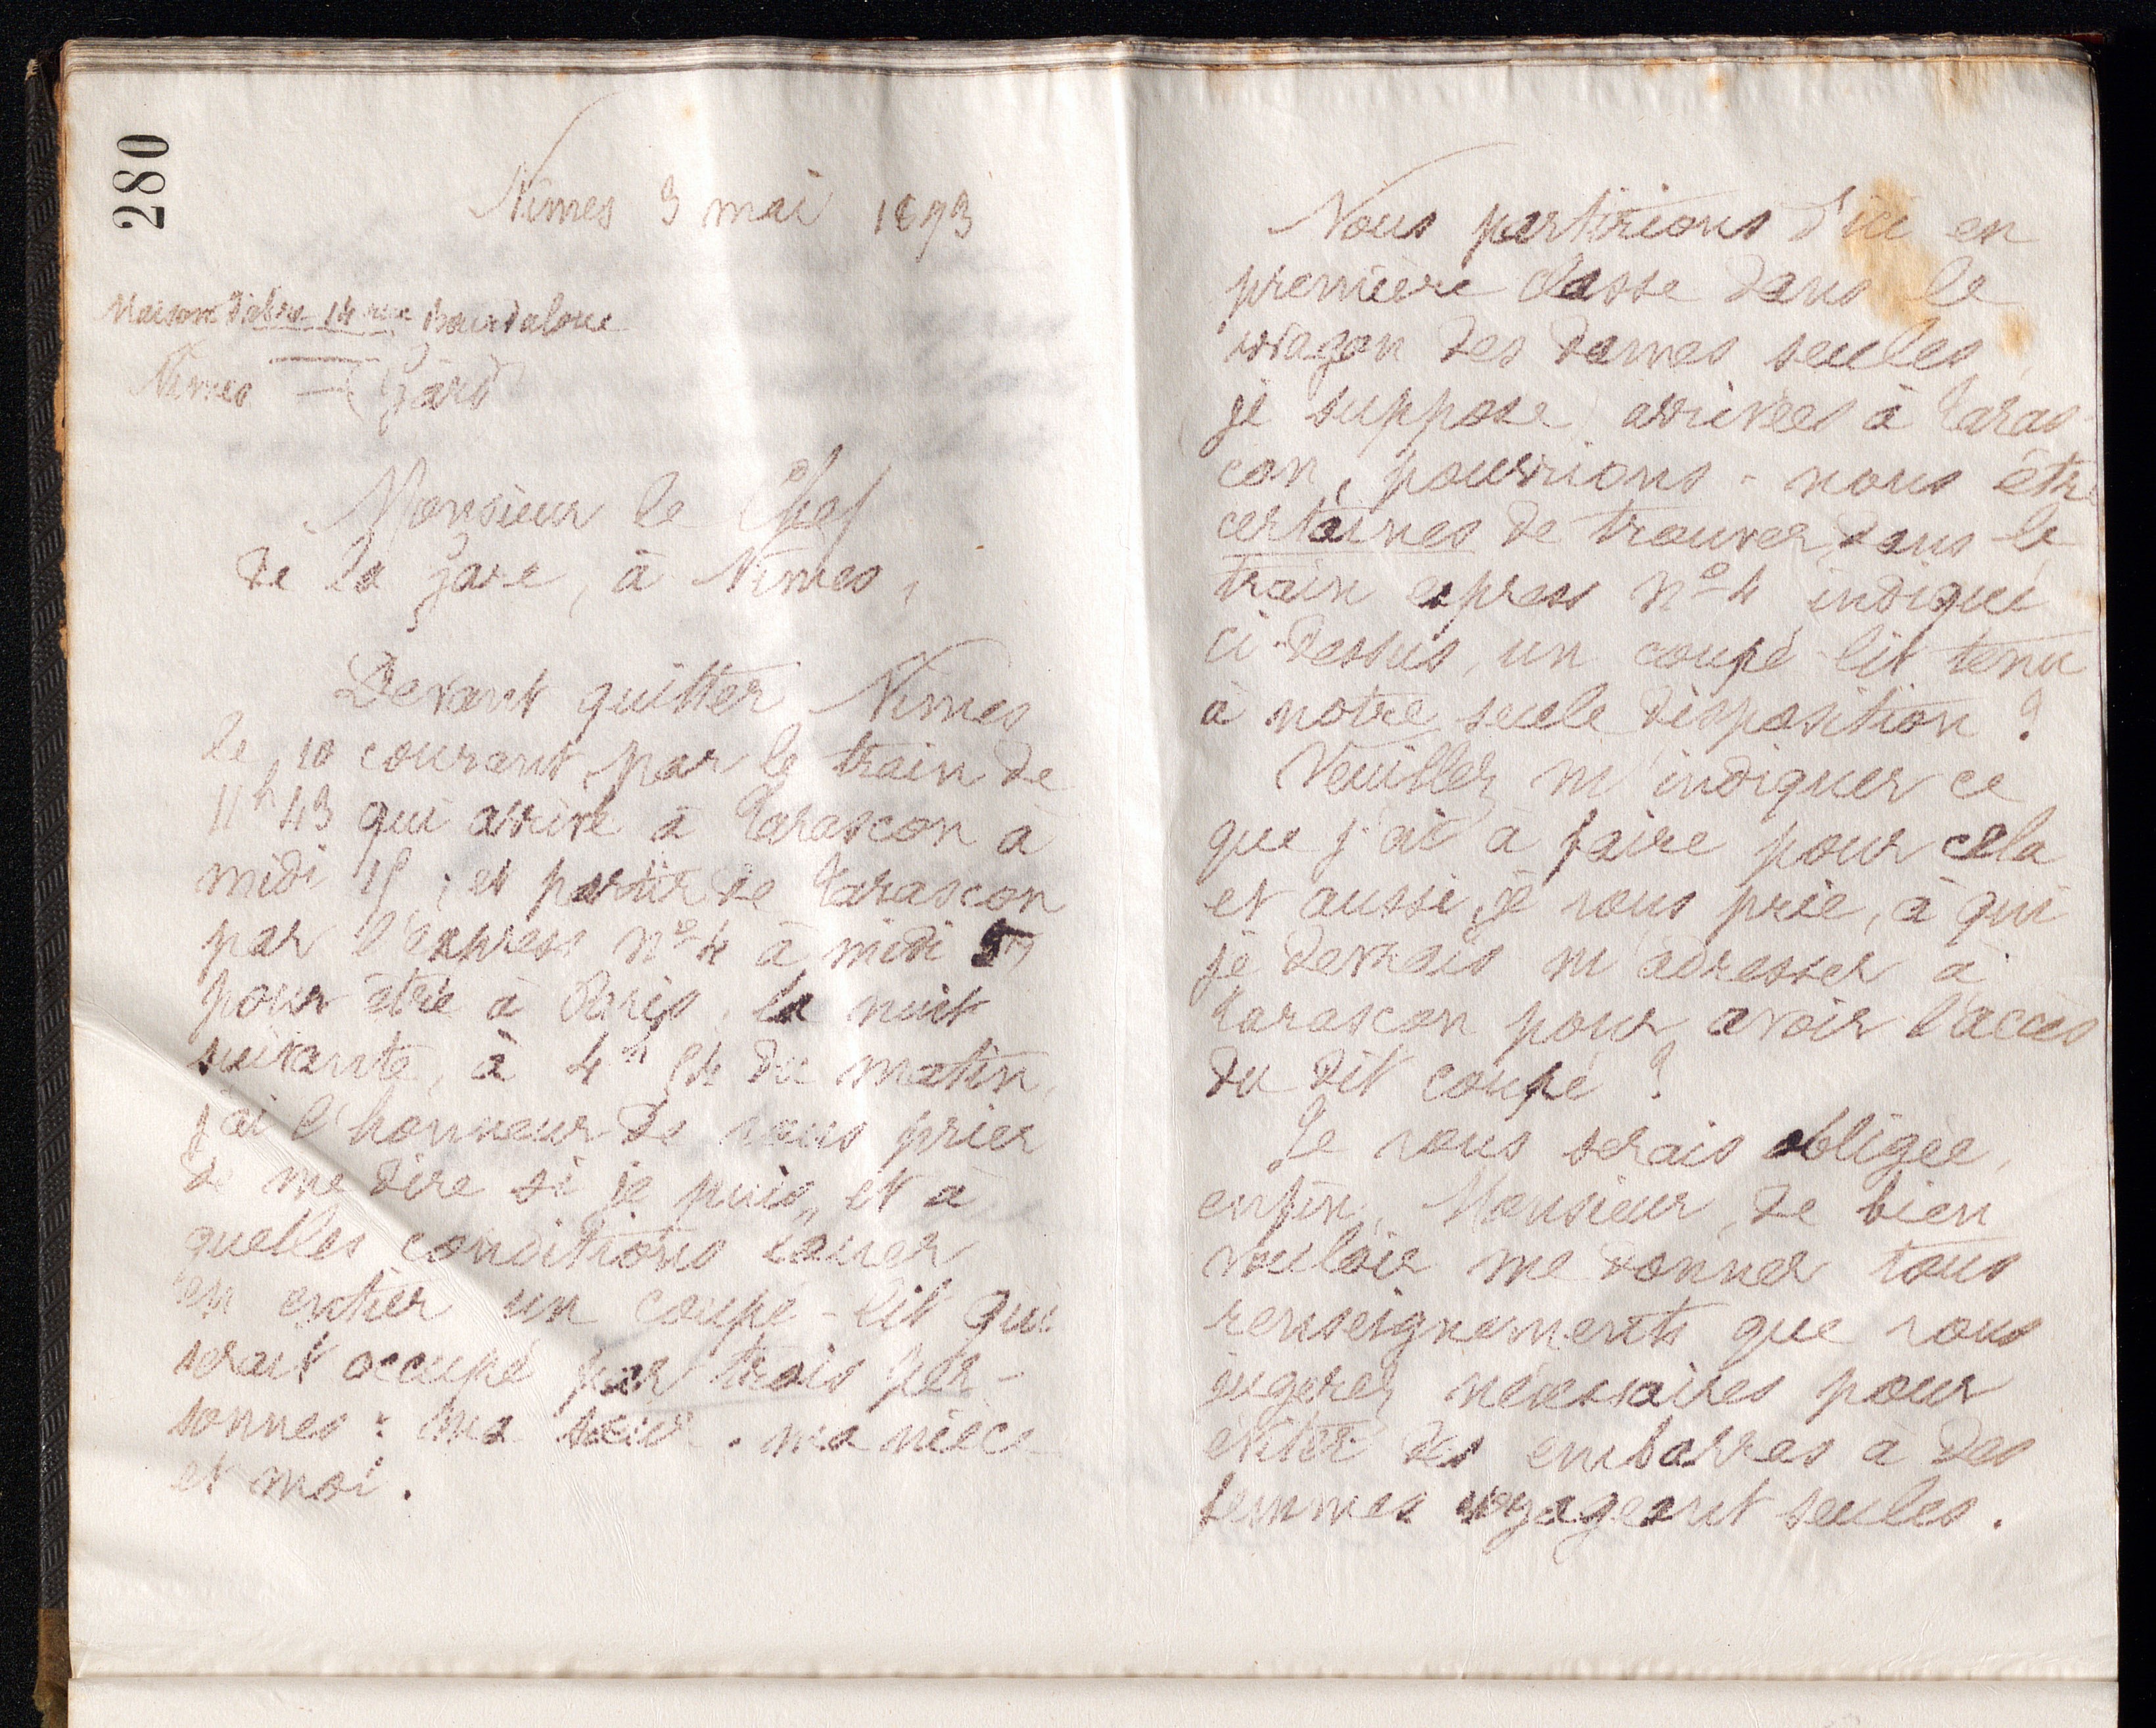 280
Nimes 3 mai 1893
Maison Fabre 14 rue Bourdaloue
Nimes — Gard
Monsieur le Chef
de la gare, à Nimes,
Devant quitter Nimes
le 10 courant par le train de
11h 43 qui arrive à Tarascon à
midi ; et partir de Tarascon
par l'express No 4 à midi 57
pour être à Paris, la nuit
suivante, à 4h 54 du matin,
j'ai l'honneur de vous prier
de me dire si je puis, et à
quelles conditions louer
en entier un coupé-lit qui
serait occupé par trois per-
sonnes : ma sœur, ma nièce
et moi.
Nous partirions d'ici en
première classe dans le
wagon des dames seules,
je suppose, arrivées à Taras-
con, pourrions-nous être
certaines de trouver, dans le
train express No 4 indiqué
ci-dessus, un coupé-lit tenu
à notre seule disposition ?
Veuillez m'indiquer ce
que j'ai à faire pour cela
et aussi, je vous prie, à qui
je devrais m'adresser à
Tarascon pour avoir l'accès
du dit coupé ?
Je vous serais obligée,
enfin, Monsieur, de bien
vouloir me donner tous
renseignements que vous
jugerez nécessaires pour
éviter des embarras à des
femmes voyageant seules.